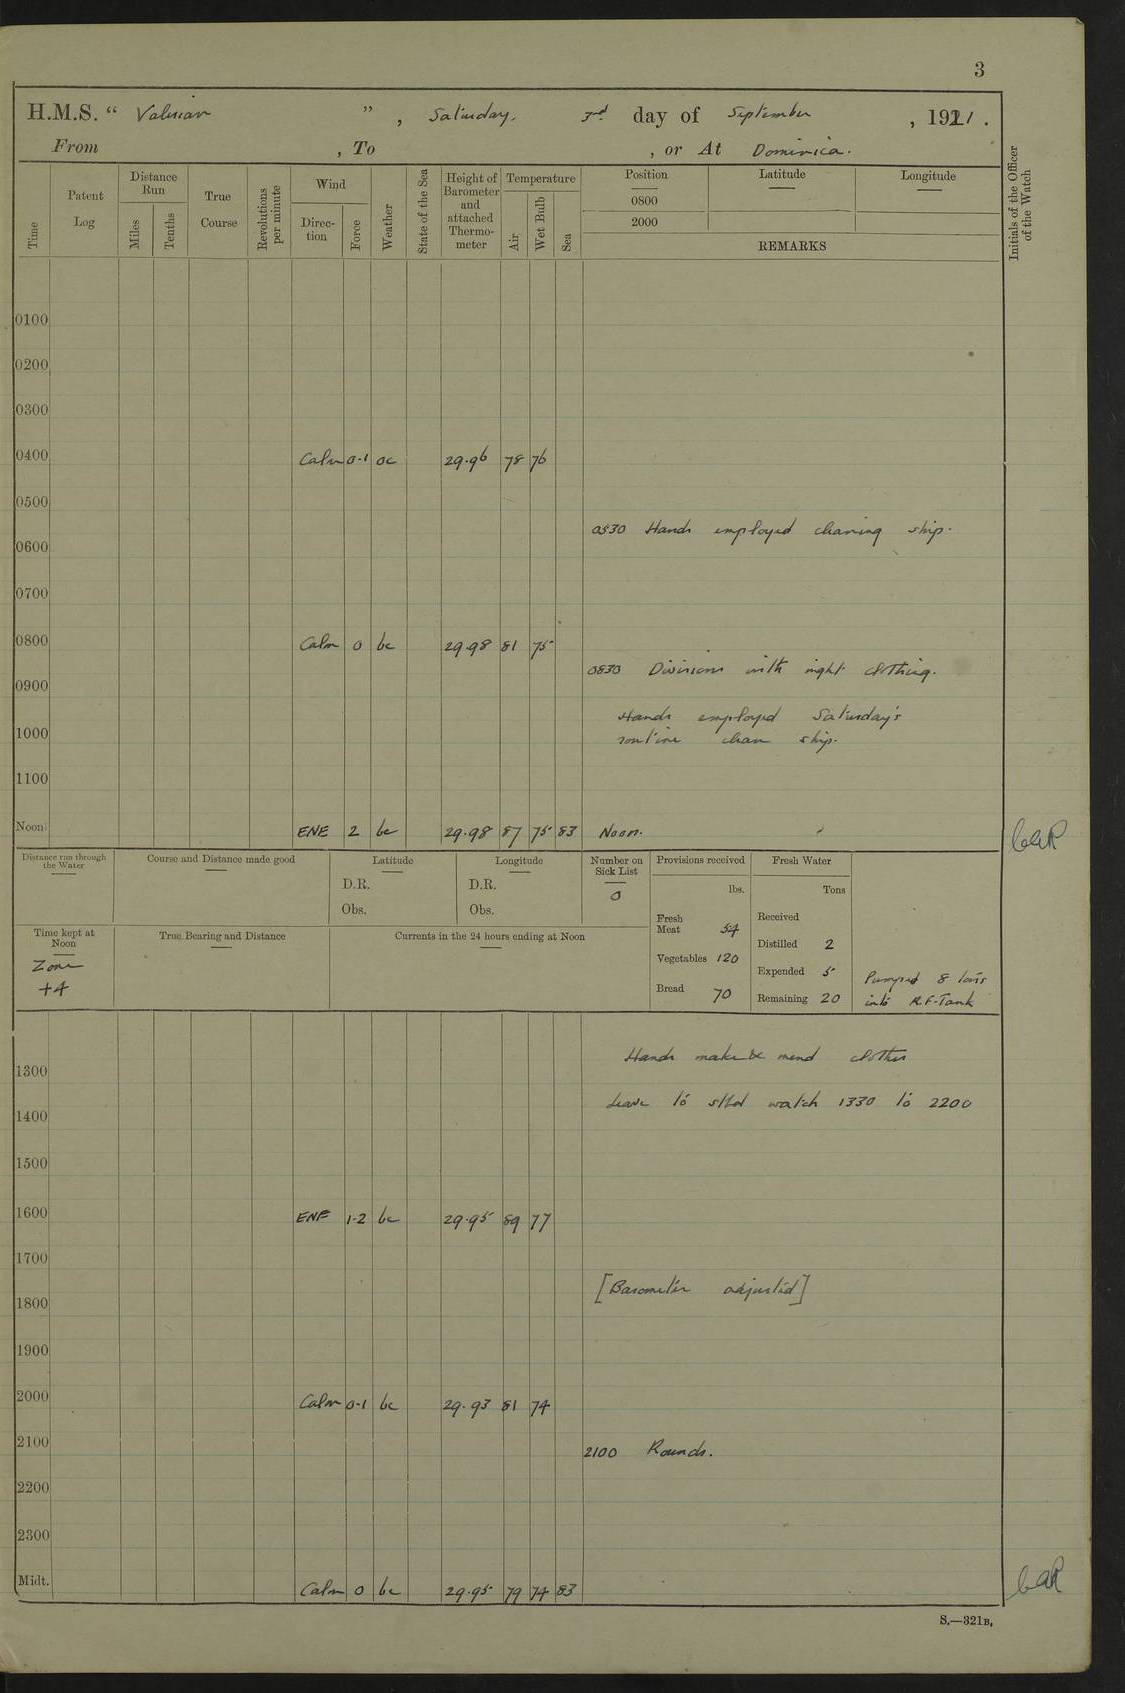 3
H.M.S. “ Valerian ” , Saturday, 3rd day of September , 1921 .
From , To , or At Dominica.
Time Patent Log Distance Run Miles Tenths True Course Revolutions per minute Wind Direction Force Weather State of the Sea Height of Barometer and attached Thermometer Temperature Air Wet Bulb Sea Position 0800 2000 Latitude Longitude REMARKS Initials of the Officer of the Watch
0100
0200
0300
0400 Calm 0-1 oc 29.96 78 76
0500
0530 Hands employed cleaning ship.
0600
0700
0800 Calm 0 bc 29.98 81 75
0830 Divisions with night clothing.
0900
Hands employed Saturday's
1000 routine clean ship.
1100
Noon ENE 2 bc 29.98 87 75 83 Noon.
Distance run through the Water Course and Distance made good Latitude D.R. Obs. Longitude D.R. Obs. Number on Sick List 0
Provisions received lbs. Fresh Water Tons
Fresh Meat 54 Received
Distilled 2
Vegetables 120
Expended 5
Bread 70 Remaining 20
Pumped 8 tons
into R.F-Tank
Time kept at Noon Zone +4 True Bearing and Distance Currents in the 24 hours ending at Noon
Hands make & mend clothes
1300
Leave to stbd watch 1330 to 2200
1400
1500
1600 ENE 1-2 bc 29.95 89 77
1700
[Barometer adjusted]
1800
1900
2000 Calm 0-1 bc 29.93 81 74
2100 2100 Rounds.
2200
2300
Midt. Calm 0 bc 29.95 79 74 83
S.—321B.